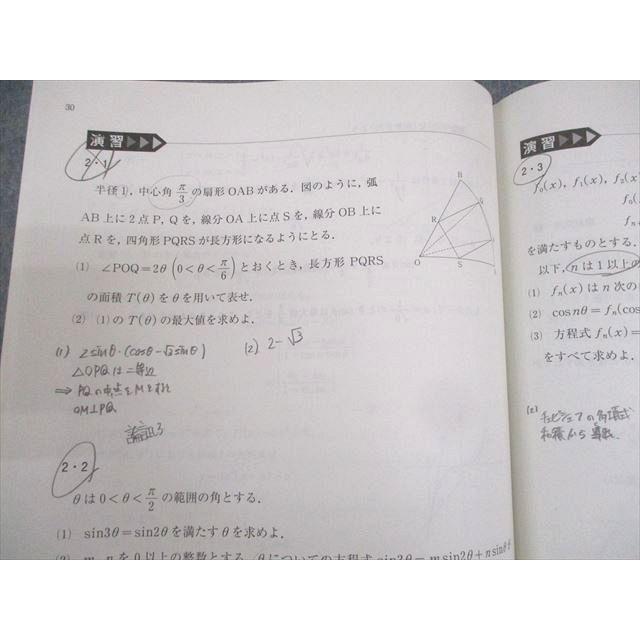 30
演習
2・1
半径1,中心角 π/3 の扇形OABがある.図のように,弧
AB上に2点P,Qを,線分OA上に点Sを,線分OB上に
点Rを,四角形PQRSが長方形になるようにとる.
(1) ∠POQ=2θ (0<θ<π/6) とおくとき,長方形PQRS
の面積T(θ)をθを用いて表せ.
(2) (1)のT(θ)の最大値を求めよ.
B
R
O
S
(1) 2sinθ・(cosθ-√3sinθ)
△OPQは二等辺
⇒ PQの中点をMとすると
OM⊥PQ
(2) 2-√3
2・2
θは0<θ<π/2の範囲の角とする.
(1) sin3θ=sin2θを満たすθを求めよ.
(2) m,nを0以上の整数とする.θについての方程式 sin3θ=m sin2θ+n sinθ
演習
2・3
f₀(x), f₁(x), f₂(x)
を満たすものとする.
以下,nは1以上の
(1) fₙ(x)はn次の
(2) cosnθ=fₙ(cos
(3) 方程式fₙ(x)=
をすべて求めよ.
(2)
チェビシェフの多項式